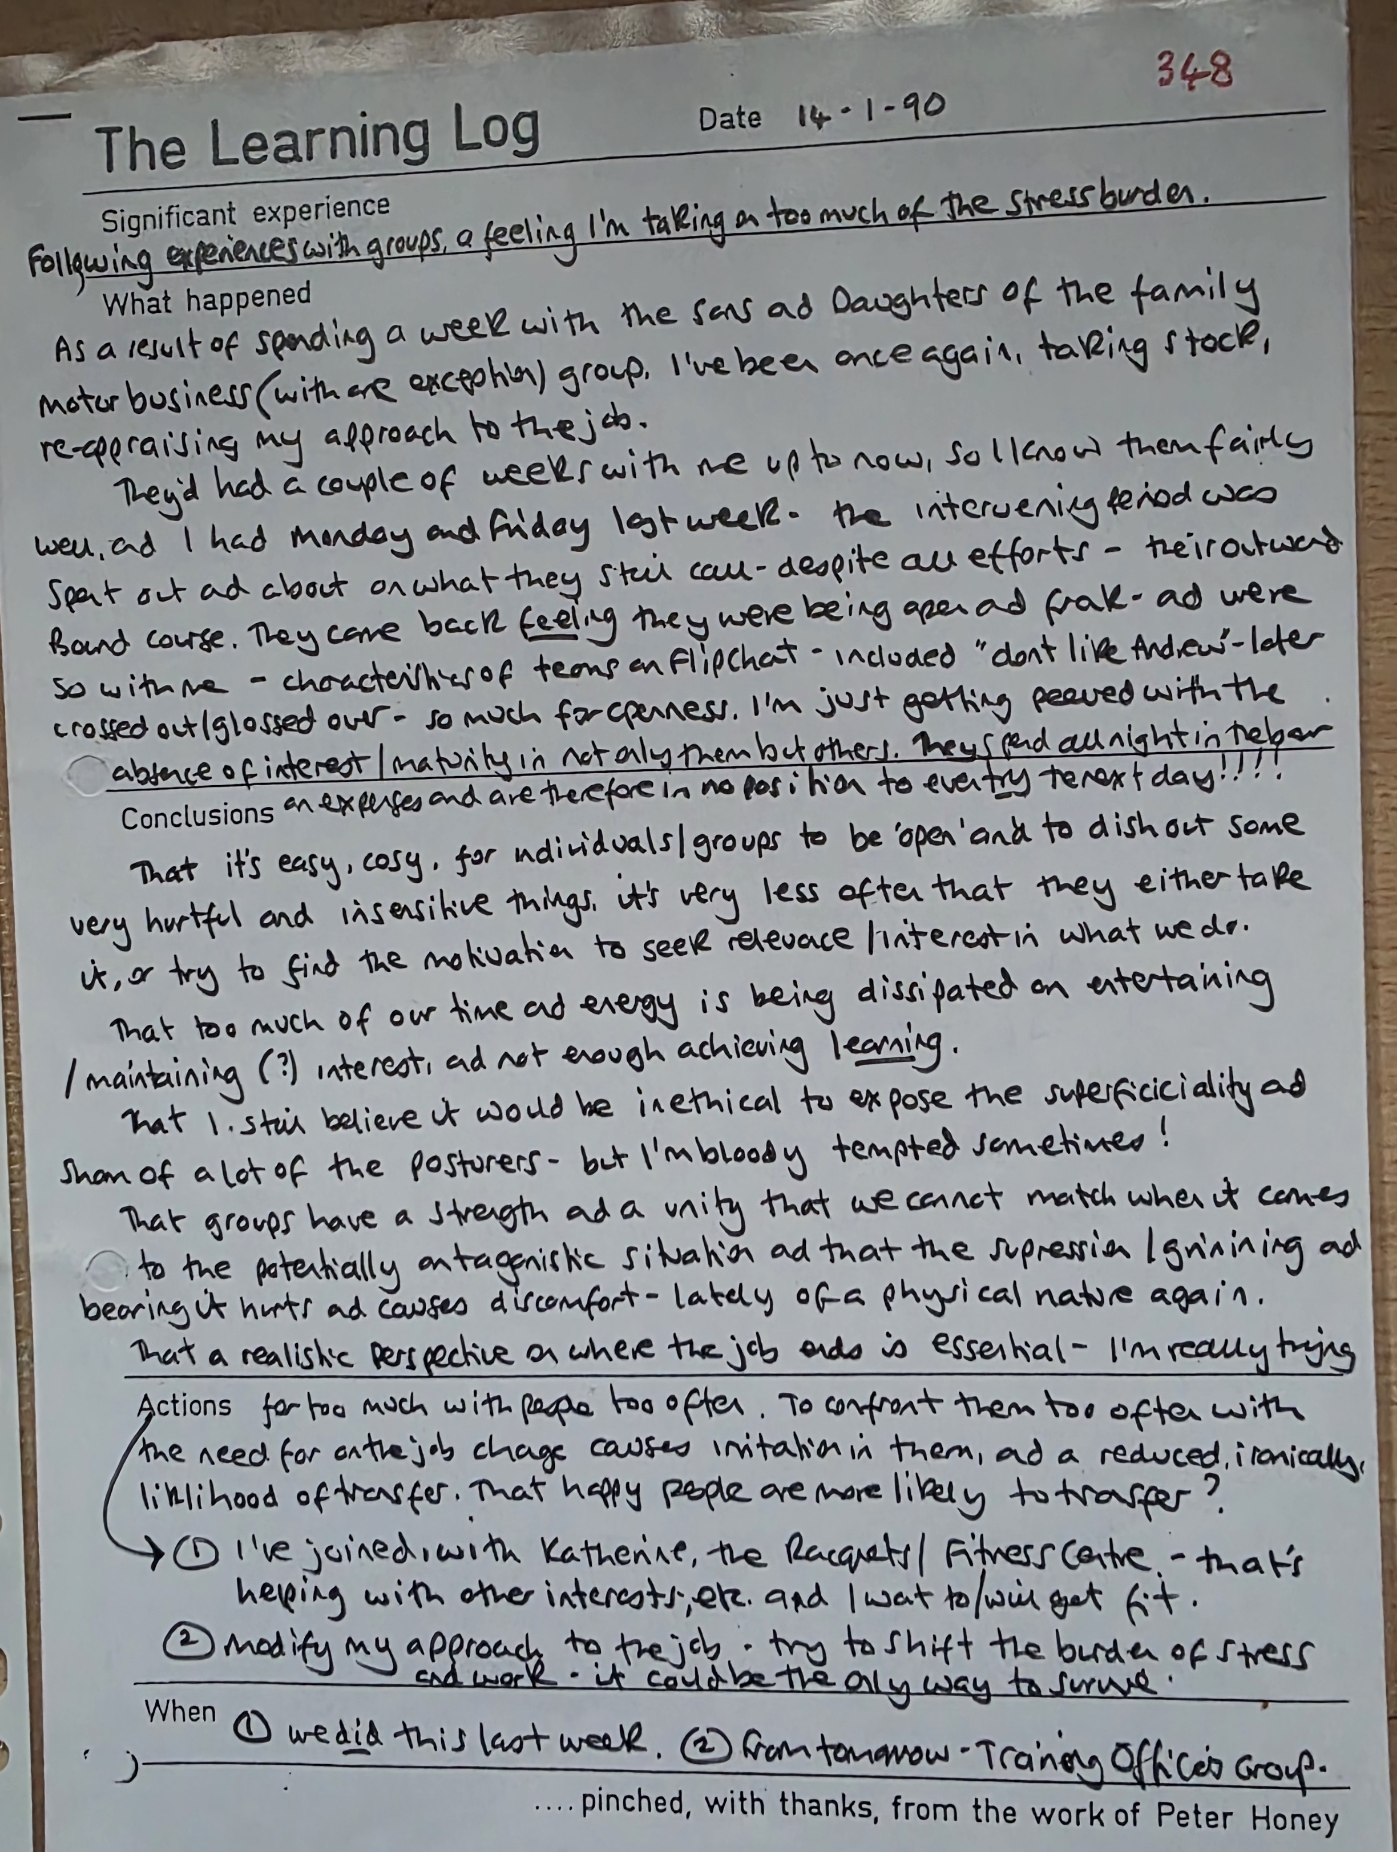 348
The Learning Log Date 14-1-90
Significant experience
Following experiences with groups, a feeling I'm taking on too much of the stress burden.
What happened
As a result of spending a week with the sons ad Daughters of the family
motor business (with one exception) group, I've been once again, taking stock,
re-appraising my approach to the job.
They'd had a couple of weeks with me up to now, so I know them fairly
well, ad I had Monday and Friday last week - the intervening period was
spent out ad about on what they still call - despite all efforts - their outward
Bound course. They came back feeling they were being open ad frank - ad were
so with me - characteristics of teams on Flipchat - included "dont like Andrew" - later
crossed out/glossed over - so much for openness. I'm just getting peeved with the
absence of interest/maturity in not only them but others. They spend all night in the bar
on expenses and are therefore in no position to even try te next day!!!!
Conclusions
That it's easy, cosy, for individuals/groups to be 'open' and to dish out some
very hurtful and insensitive things, it's very less often that they either take
it, or try to find the motivation to seek relevace/interest in what we do.
That too much of our time ad energy is being dissipated on entertaining
/maintaining (?) interest, ad not enough achieving learning.
That I still believe it would be inethical to expose the superficiciality ad
sham of a lot of the posturers - but I'm bloody tempted sometimes!
That groups have a strength ad a unity that we cannot match when it comes
to the potentially antagonistic situation ad that the supression/grinining ad
bearing it hurts ad causes discomfort - lately of a physical nature again.
That a realistic perspective on where the job ends is essential - I'm really trying
Actions for too much with people too often. To confront them too often with
the need for on the job chage causes irritation in them, ad a reduced, ironically,
liklihood of transfer. That happy people are more likely to trasfer?
① I've joined, with Katherine, the Racquets/Fitness Centre. - that's
helping with other interests, etc. and I wat to/will get fit.
② modify my approach to the job - try to shift the burden of stress
and work - it could be the only way to survive.
When ① we did this last week. ② From tomorrow - Training Officers Group.
.... pinched, with thanks, from the work of Peter Honey